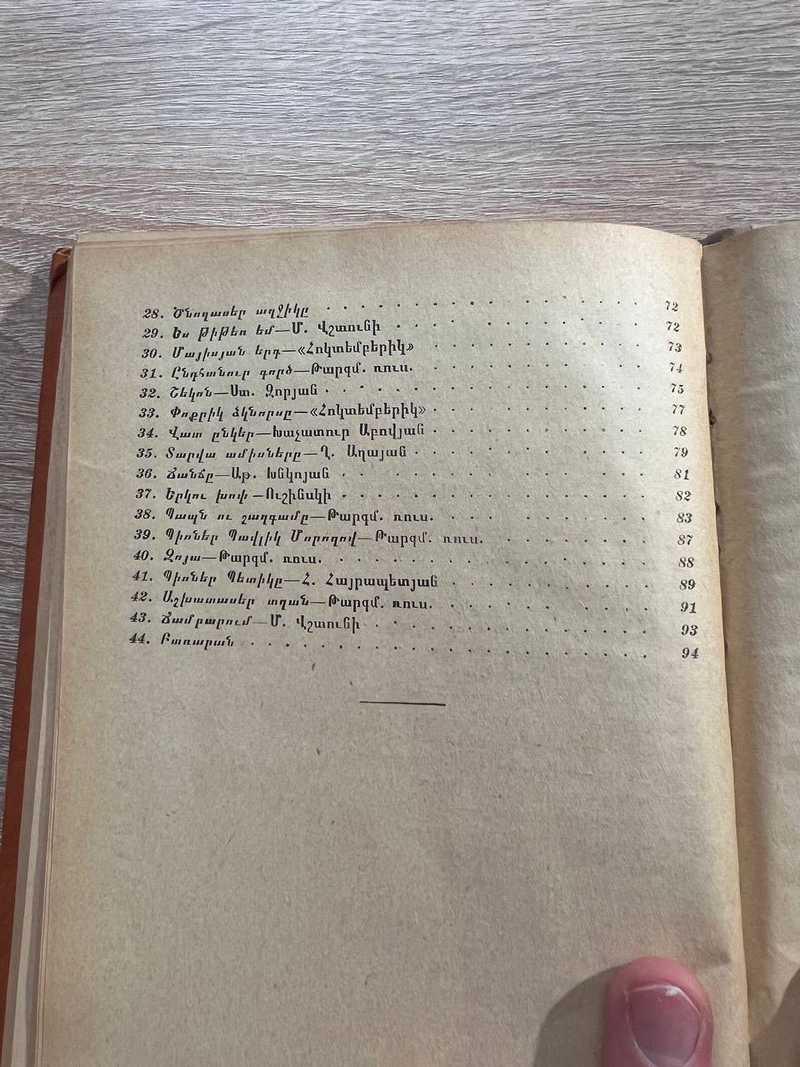 28. Ծնողասեր աղջիկը . . . . . . . . . . . . . . 72
29. Ես Թիթեռ եմ—Մ. Վշտունի . . . . . . . . . . . 72
30. Մայիսյան երգ—«Հոկտեմբերիկ» . . . . . . . . . . 73
31. Ընդհանուր գործ—Թարգմ. ռուս. . . . . . . . . . . 74
32. Շեկոն—Ստ. Զորյան . . . . . . . . . . . . . . 75
33. Փոքրիկ ձկնորսը—«Հոկտեմբերիկ» . . . . . . . . . 77
34. Վատ ընկեր—Խաչատուր Աբովյան . . . . . . . . . 78
35. Տարվա ամիսները—Ղ. Աղայան . . . . . . . . . . 79
36. Ճանճը—Աթ. Խնկոյան . . . . . . . . . . . . . 81
37. Երկու խոփ—Ուշինսկի . . . . . . . . . . . . . 82
38. Պապն ու շաղգամը—Թարգմ. ռուս. . . . . . . . . . 83
39. Պիոներ Պավլիկ Մորոզով—Թարգմ. ռուս. . . . . . . . 87
40. Զոյա—Թարգմ. ռուս. . . . . . . . . . . . . . . 88
41. Պիոներ Պետիկը—Հ. Հայրապետյան . . . . . . . . . 89
42. Աշխատասեր տղան—Թարգմ. ռուս. . . . . . . . . . 91
43. Ճամբարում—Մ. Վշտունի . . . . . . . . . . . . 93
44. Բառարան . . . . . . . . . . . . . . . . . 94